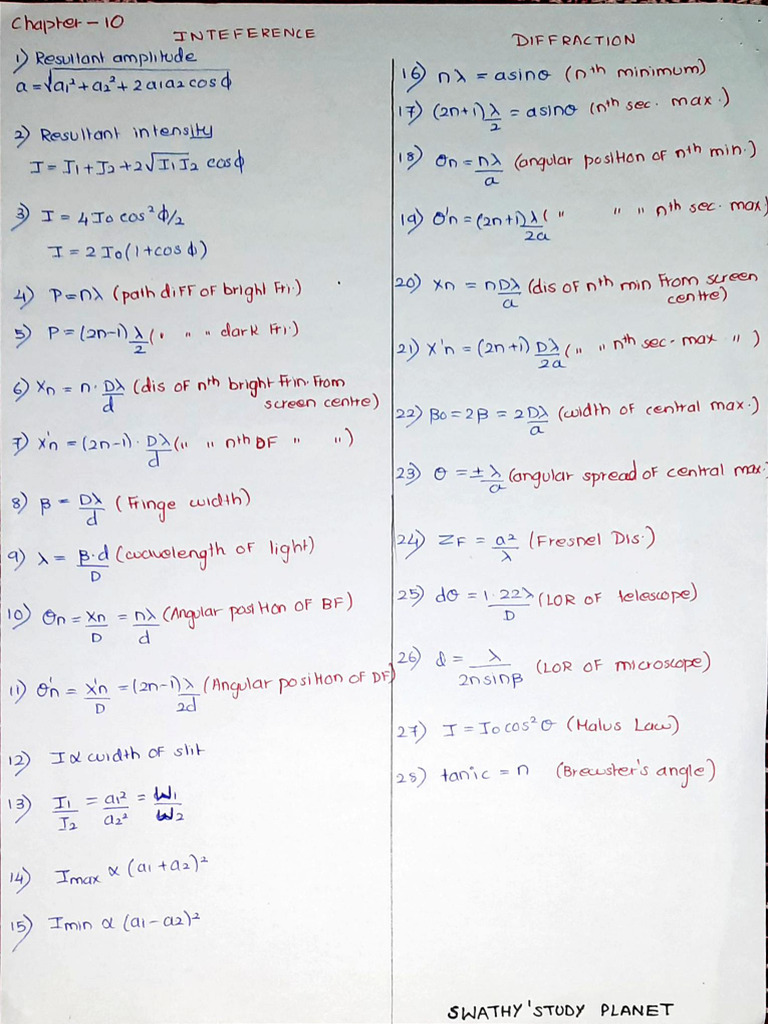 Chapter - 10
INTEFERENCE
1) Resultant amplitude
a = √a₁² + a₂² + 2a₁a₂ cosϕ
2) Resultant intensity
I = I₁ + I₂ + 2√I₁I₂ cosϕ
3) I = 4I₀ cos² ϕ/2
I = 2I₀(1+cosϕ)
4) P = nλ (path diff of bright Fri.)
5) P = (2n-1) λ/2 (" " " dark Fri.)
6) Xn = n. Dλ/d (dis of nth bright Frin. From
screen centre)
7) X'n = (2n-1). Dλ/d (" " nth DF " ")
8) β = Dλ/d (Fringe width)
9) λ = β.d/D (wavelength of light)
10) θn = Xn/D = nλ/d (Angular position of BF)
11) θ'n = X'n/D = (2n-1)λ/2d (Angular position of DF)
12) I ∝ width of slit
13) I₁/I₂ = a₁²/a₂² = W₁/W₂
14) Imax ∝ (a₁ + a₂)²
15) Imin ∝ (a₁ - a₂)²
DIFFRACTION
16) nλ = asinθ (nth minimum)
17) (2n+1) λ/2 = asinθ (nth sec. max.)
18) θn = nλ/a (angular position of nth min.)
19) θ'n = (2n+1) λ/2a (" " " nth sec. max)
20) Xn = nDλ/a (dis of nth min from screen
centre)
21) X'n = (2n+1) Dλ/2a (" " nth sec. max ")
22) β₀ = 2β = 2Dλ/a (width of central max.)
23) θ = ± λ/a (angular spread of central max.
24) ZF = a²/λ (Fresnel Dis.)
25) dθ = 1.22λ/D (LOR of telescope)
26) d = λ/2nsinβ (LOR of microscope)
27) I = I₀ cos² θ (Malus Law)
28) tan ic = n (Brewster's angle)
SWATHY'STUDY PLANET